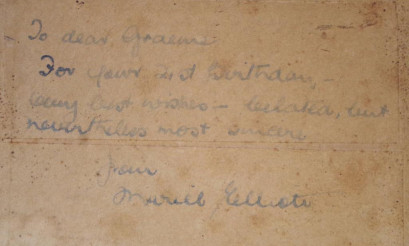 To dear Graeme
For your 21st birthday, –
being best wishes – belated, but
nevertheless most sincere
from
Muriel Elliott